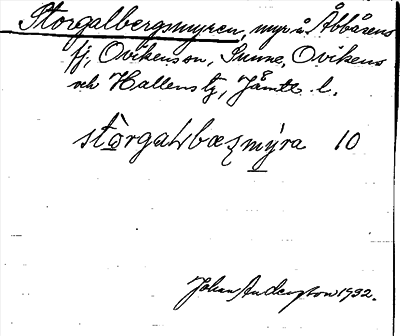 Storgalbergsmyren, myr å Åbbåsens
fj, Ovikens sn, Sunne, Ovikens
och Hallens tg, Jämtl. l.
stòrgaḷbæʒmýra 10
Johan Anderston 1932.